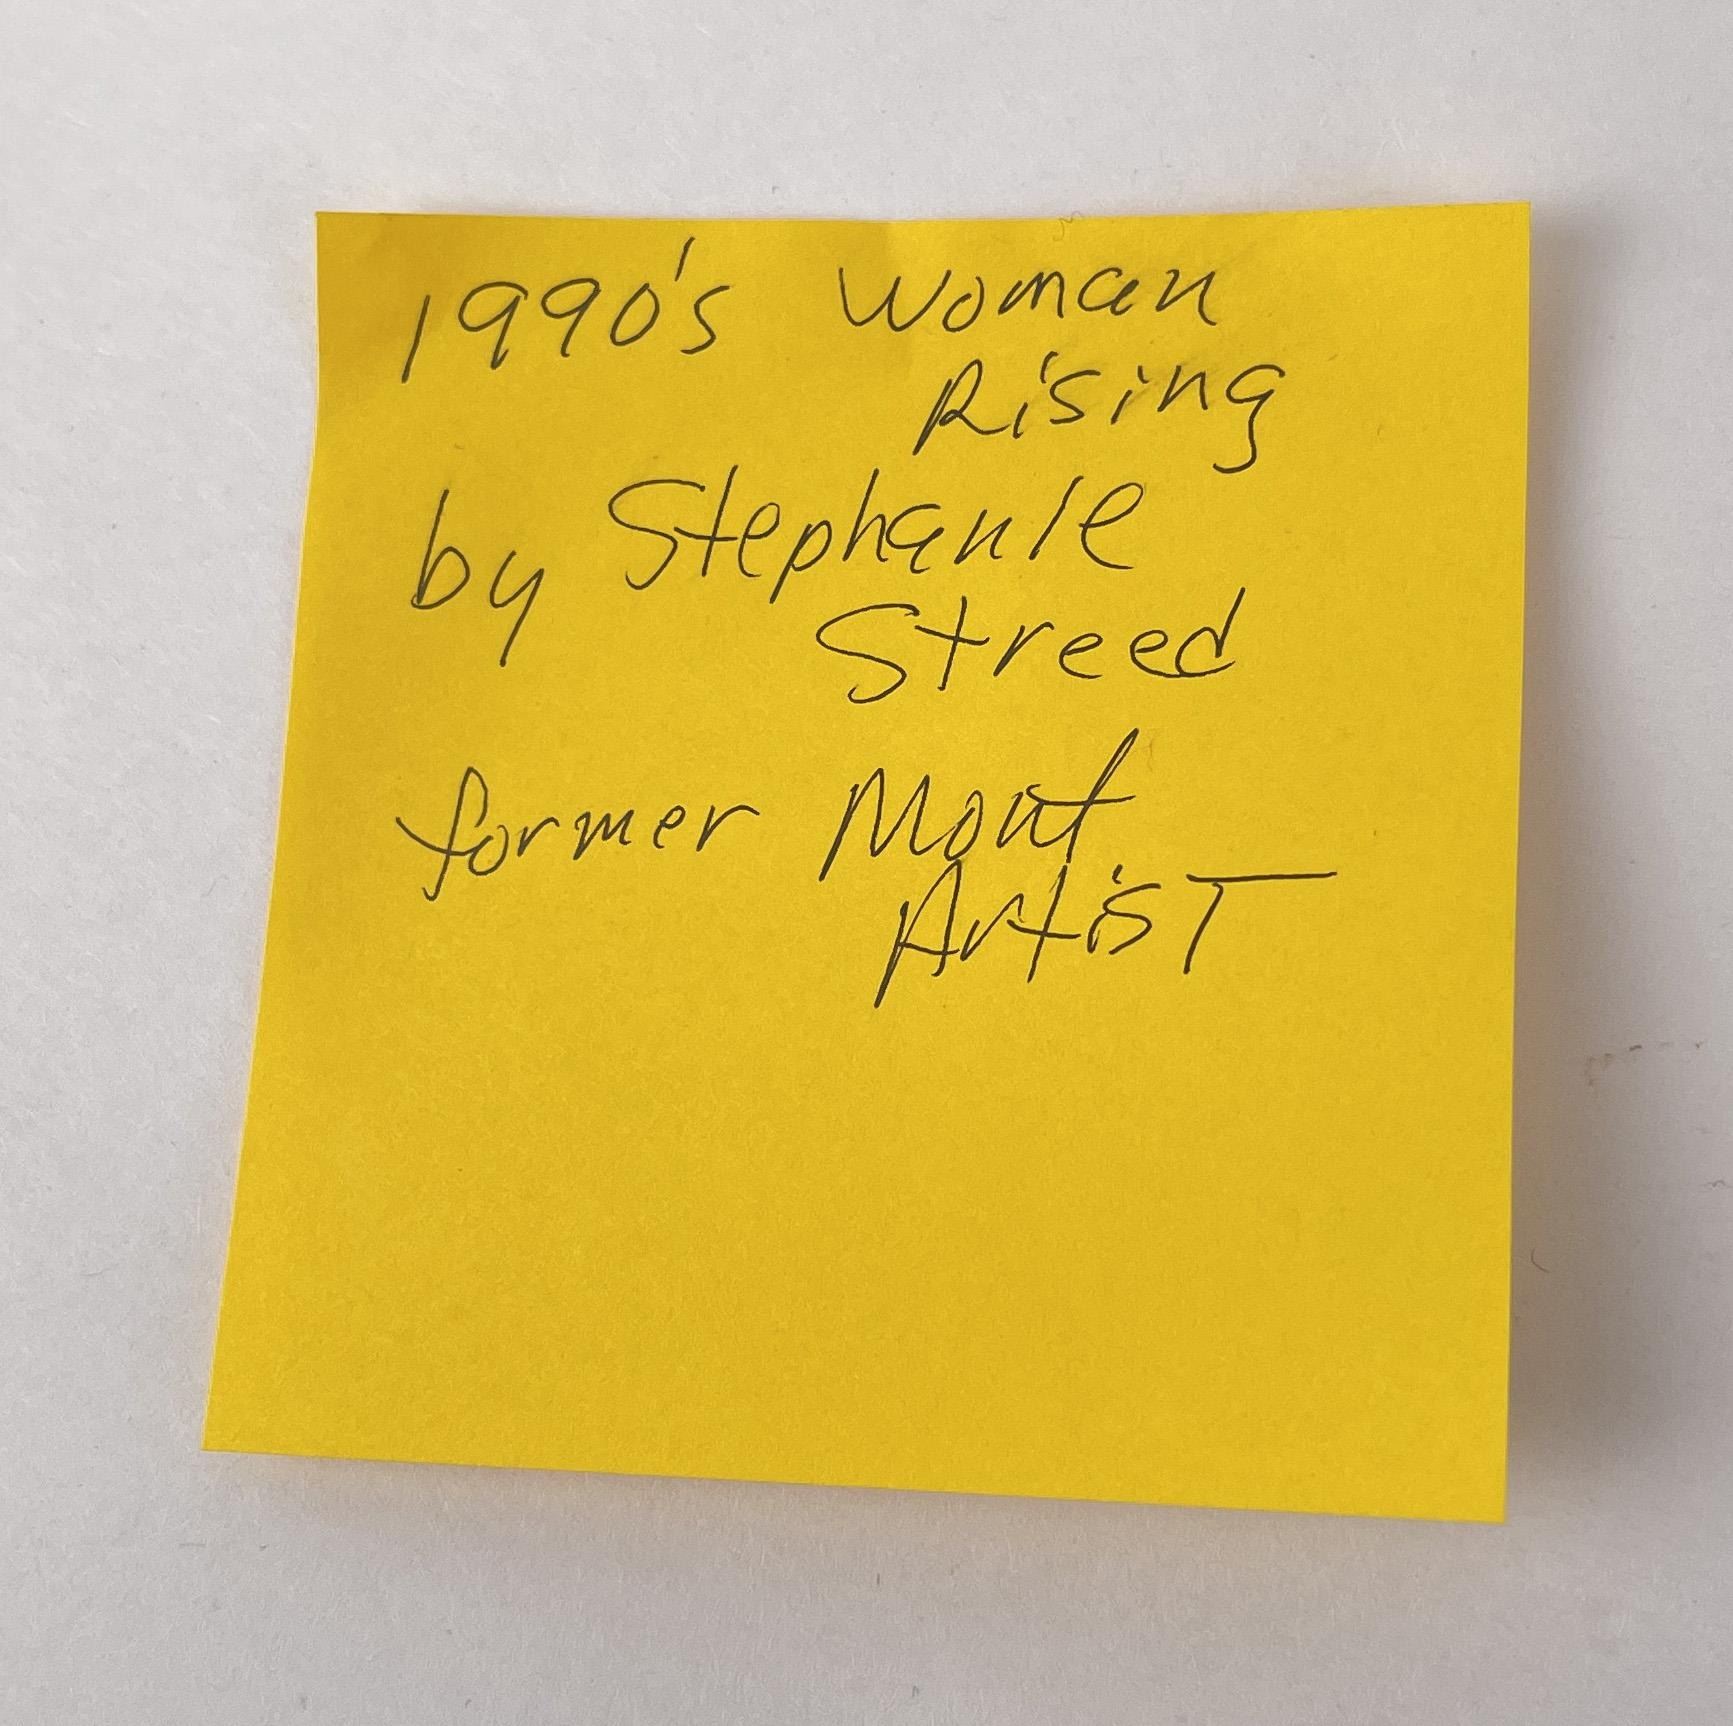 1990's Woman
Rising
by Stephanie
Streed
former Mont.
Artist